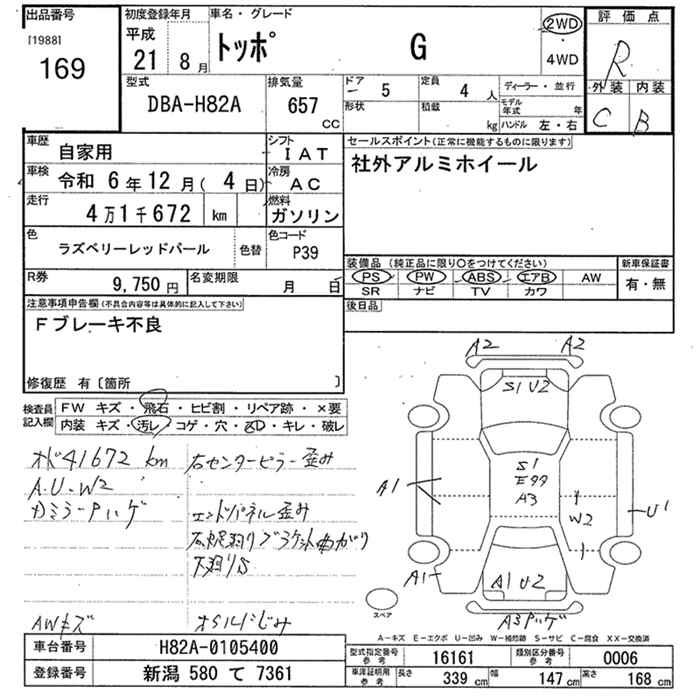 出品番号 初度登録年月 車名・グレード 評価点
[1988] 平成 トッポ G 2WD
169 21 8月 4WD R
型式 排気量 ドア 5 定員 4 人 ディーラー・並行 外装 内装
DBA-H82A 657 CC 形状 積載 kg モデル年式 年 C B
ハンドル 左・右
車歴 自家用 シフト IAT セールスポイント(正常に機能するものに限ります)
車検 令和 6年 12月( 4日) 冷房 AC 社外アルミホイール
走行 4万1千672 km 燃料 ガソリン
色 ラズベリーレッドパール 色替 色コード P39
装備品 (純正品に限り○をつけてください) 新車保証書
R券 9,750円 名変期限 月 日 PS PW ABS エアB AW 有・無
SR ナビ TV カワ
注意事項申告欄(不具合内容等は具体的に記入して下さい) 後日品
Fブレーキ不良
修復歴 有〔箇所 〕
検査員記入欄 FW キズ・飛石・ヒビ割・リペア跡・×要
内装 キズ・汚レ・コゲ・穴・スレ・キレ・破レ
A2 A2
S1 U2
S1
E99
A3
A1 W2 U1
A1 A1 U2
A3 ハゲ
スペア
オド41672 km 右センターピラー歪み
A.U-W2
カミラーPハゲ エンドパネル歪み
下廻りS
AWキズ オイルにじみ
A-キズ E-エクボ U-凹み W-補修跡 S-サビ C-腐食 XX-交換済
車台番号 H82A-0105400 型式指定番号 参考 16161 類別区分番号 参考 0006
登録番号 新潟 580 て 7361 車庫証明用 参考 長さ 339 cm 幅 147 cm 高さ 168 cm